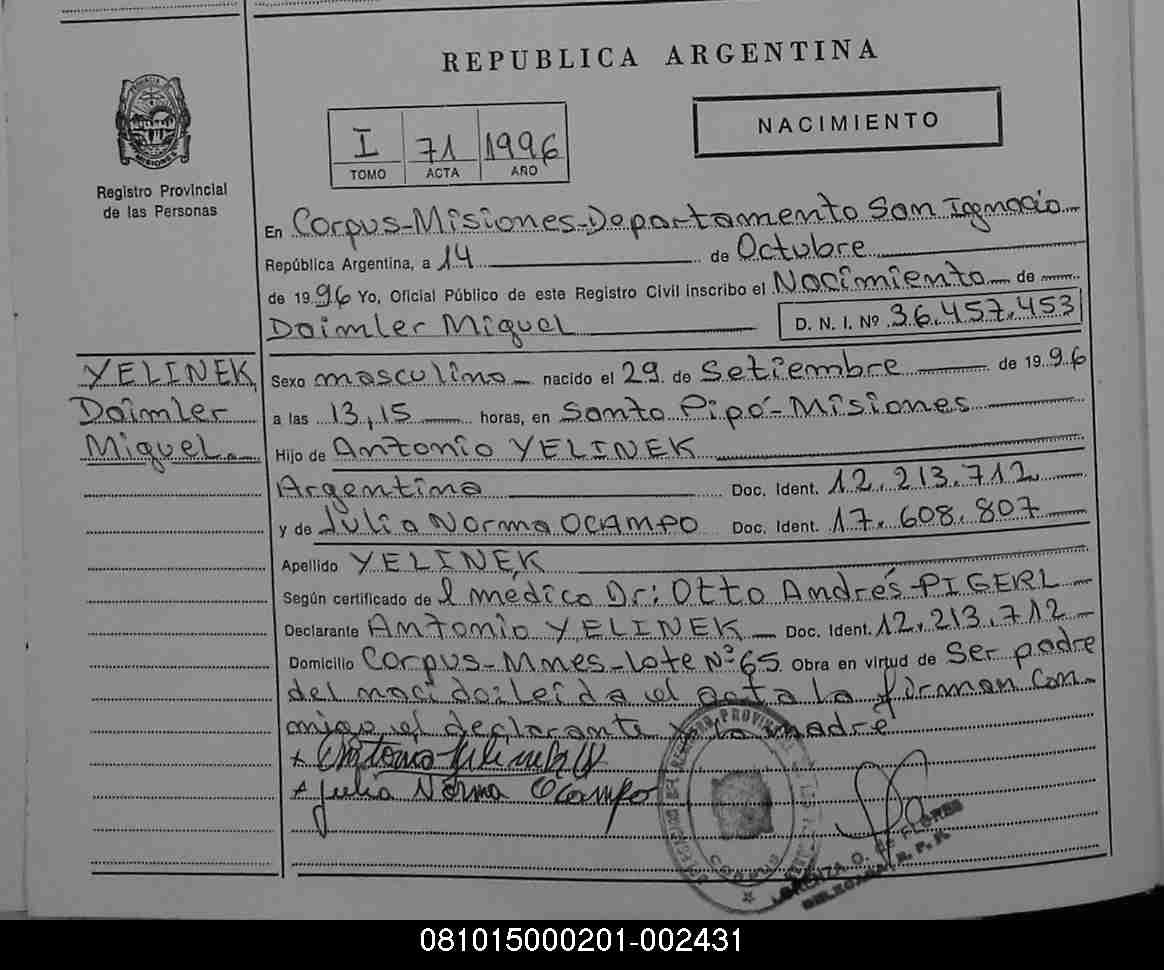 REPUBLICA ARGENTINA
I 71 1996
TOMO ACTA AÑO
NACIMIENTO
Registro Provincial
de las Personas
En Corpus-Misiones-Departamento San Ignacio
República Argentina, a 14 de Octubre
de 1996 Yo, Oficial Público de este Registro Civil inscribo el Nacimiento de
Daimler Miguel D. N. I. Nº 36.457.453
YELINEK
Daimler
Miguel.
Sexo masculino nacido el 29 de Setiembre de 1996
a las 13,15 horas, en Santo Pipó-Misiones
Hijo de Antonio YELINEK
Argentino Doc. Ident. 12.213.712
y de Julia Norma OCAMPO Doc. Ident. 17.608.807
Apellido YELINEK
Según certificado de l médico Dr: Otto Andrés PIGERL
Declarante Antonio YELINEK Doc. Ident. 12.213.712
Domicilio Corpus-Mnes-Lote Nº65 Obra en virtud de Ser padre
del nacido: leida el acta la firman con-
migo el declarante y la madre
Julia Norma Ocampo
CORPUS
O. de FLORES
DELEGADA R. P. P.
081015000201-002431